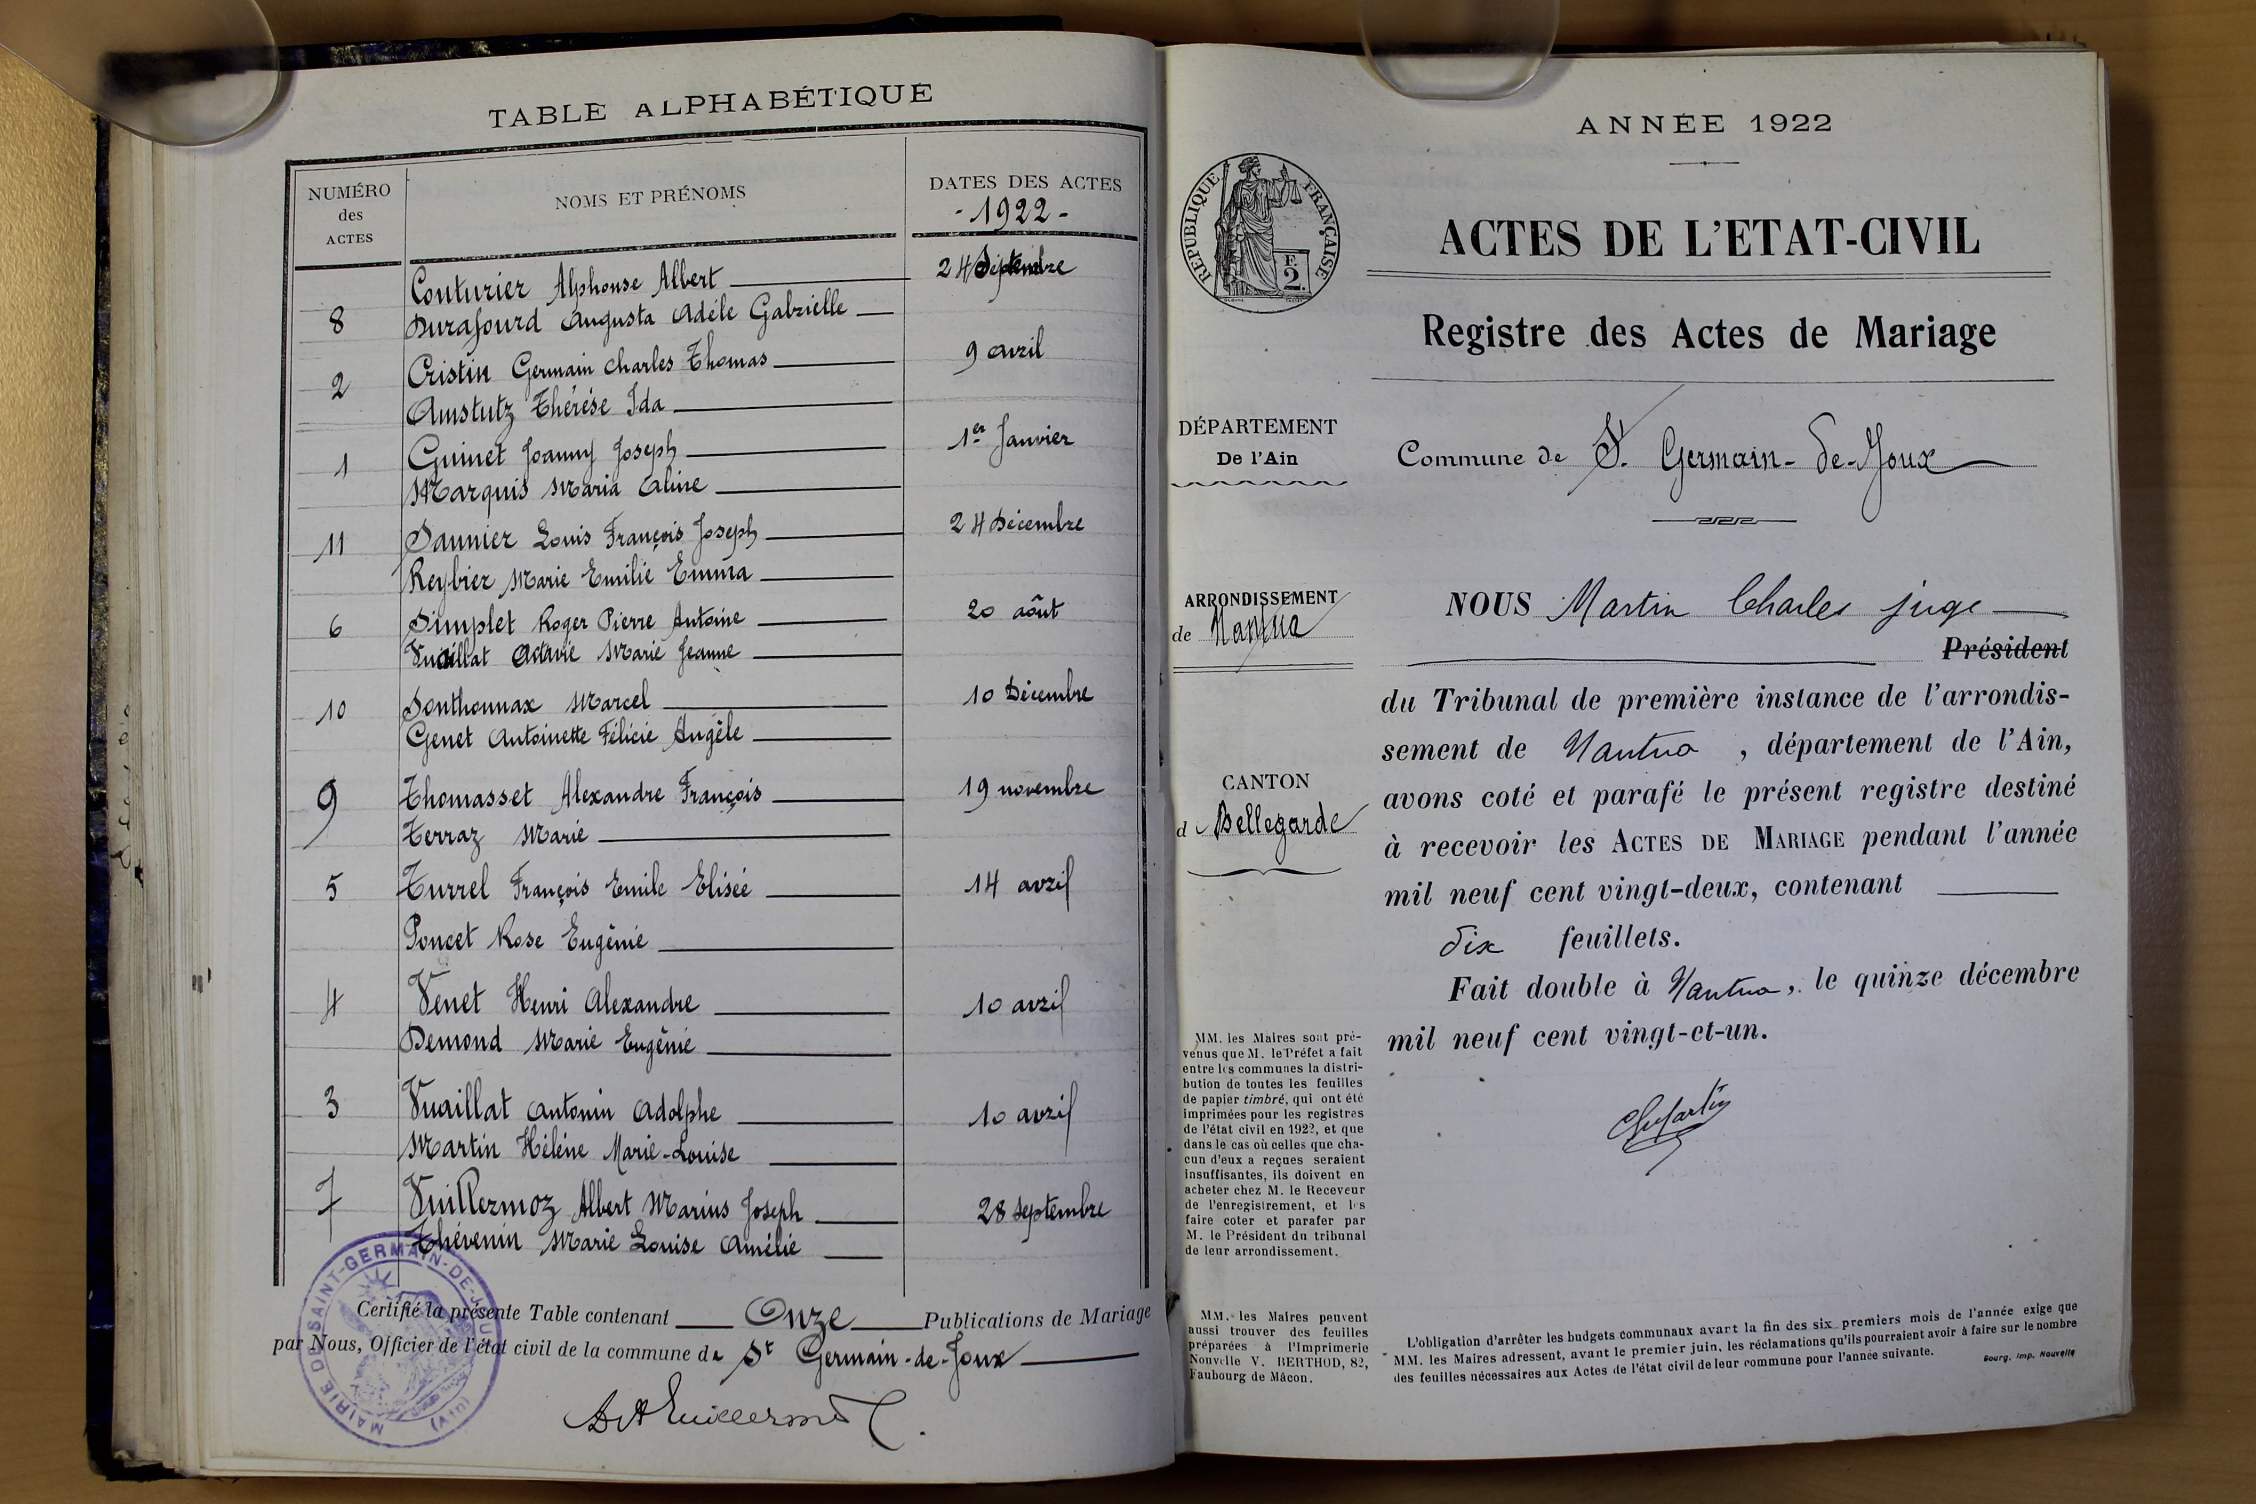 TABLE ALPHABÉTIQUE
NUMÉRO
des
ACTES
NOMS ET PRÉNOMS
DATES DES ACTES
- 1922 -
Couturier Alphonse Albert 24 Septembre
8 Durafourd Augusta Adèle Gabrielle
2 Cristin Germain Charles Thomas 9 avril
Amstutz Thérèse Ida
1 Guinet Joanny Joseph 1er Janvier
Marquis Maria Aline
11 Saunier Louis François Joseph 24 Décembre
Reybier Marie Emilie Emma
6 Simplet Roger Pierre Antoine 20 août
Vuaillat Octavie Marie Jeanne
10 Sonthonnax Marcel 10 Décembre
Genet Antoinette Félicie Angèle
9 Thomasset Alexandre François 19 novembre
Terraz Marie
5 Turrel François Emile Elisée 14 avril
Poncet Rose Eugénie
4 Venet Henri Alexandre 10 avril
Demond Marie Eugénie
3 Vuaillat Antonin Adolphe 10 avril
Martin Hélène Marie-Louise
7 Vuillermoz Albert Marius Joseph 28 septembre
Thévenin Marie Louise Amélie
Certifié la présente Table contenant Onze Publications de Mariage
par Nous, Officier de l'état civil de la commune de St Germain-de-Joux
MAIRIE DE SAINT-GERMAIN-DE-JOUX (AIN)
ANNÉE 1922
RÉPUBLIQUE FRANÇAISE
F.
2.
ACTES DE L'ETAT-CIVIL
Registre des Actes de Mariage
DÉPARTEMENT
De l'Ain
Commune de St Germain-de-Joux
ARRONDISSEMENT
de Nantua
CANTON
d Bellegarde
NOUS Martin Charles juge
Président
du Tribunal de première instance de l'arrondis-
sement de Nantua, département de l'Ain,
avons coté et parafé le présent registre destiné
à recevoir les ACTES DE MARIAGE pendant l'année
mil neuf cent vingt-deux, contenant
dix feuillets.
Fait double à Nantua, le quinze décembre
mil neuf cent vingt-et-un.
ChMartin
MM. les Maires sont pré-
venus que M. le Préfet a fait
entre les communes la distri-
bution de toutes les feuilles
de papier timbré, qui ont été
imprimées pour les registres
de l'état civil en 1922, et que
dans le cas où celles que cha-
cun d'eux a reçues seraient
insuffisantes, ils doivent en
acheter chez M. le Receveur
de l'enregistrement, et les
faire coter et parafer par
M. le Président du tribunal
de leur arrondissement.
MM. les Maires peuvent
aussi trouver des feuilles
préparées à l'Imprimerie
Nouvelle V. BERTHOD, 82,
Faubourg de Mâcon.
L'obligation d'arrêter les budgets communaux avant la fin des six premiers mois de l'année exige que
MM. les Maires adressent, avant le premier juin, les réclamations qu'ils pourraient avoir à faire sur le nombre
des feuilles nécessaires aux Actes de l'état civil de leur commune pour l'année suivante.
Bourg, Imp. Nouvelle